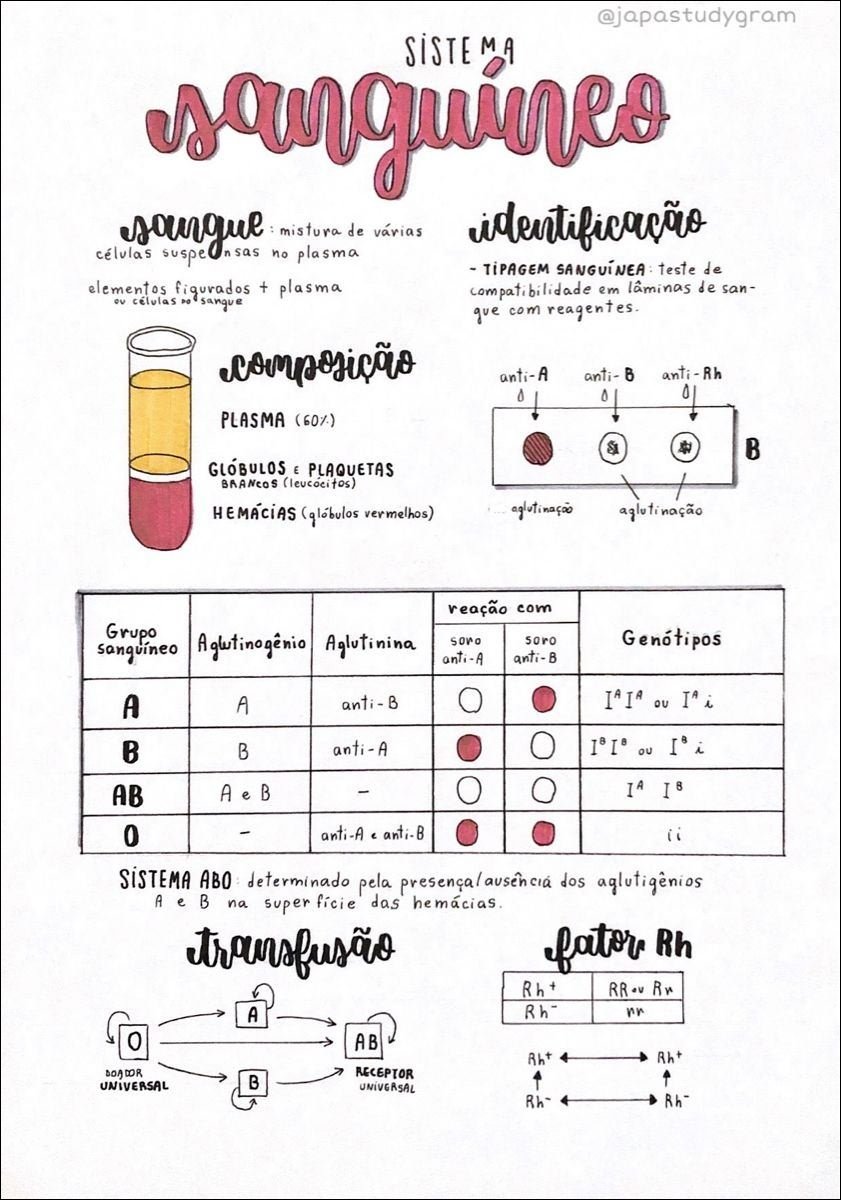 @japastudygram
SISTEMA
sanguíneo
sangue: mistura de várias
células suspensas no plasma
elementos figurados + plasma
ou células no sangue
composição
PLASMA (60%)
GLÓBULOS E PLAQUETAS
BRANCOS (leucócitos)
HEMÁCIAS (glóbulos vermelhos)
identificação
- TIPAGEM SANGUÍNEA: teste de
compatibilidade em lâminas de san-
gue com reagentes.
anti-A anti-B anti-Rh
B
aglutinação aglutinação
Grupo sanguíneo Aglutinogênio Aglutinina reação com soro anti-A soro anti-B Genótipos
A A anti-B IᴬIᴬ ou Iᴬi
B B anti-A IᴮIᴮ ou Iᴮi
AB A e B - Iᴬ Iᴮ
O - anti-A e anti-B ii
SISTEMA ABO: determinado pela presença/ausência dos aglutigênios
A e B na superfície das hemácias.
transfusão
A
O AB
DOADOR UNIVERSAL
B
RECEPTOR UNIVERSAL
fator Rh
Rh+ RR ou Rr
Rh- rr
Rh+ Rh+
Rh- Rh-